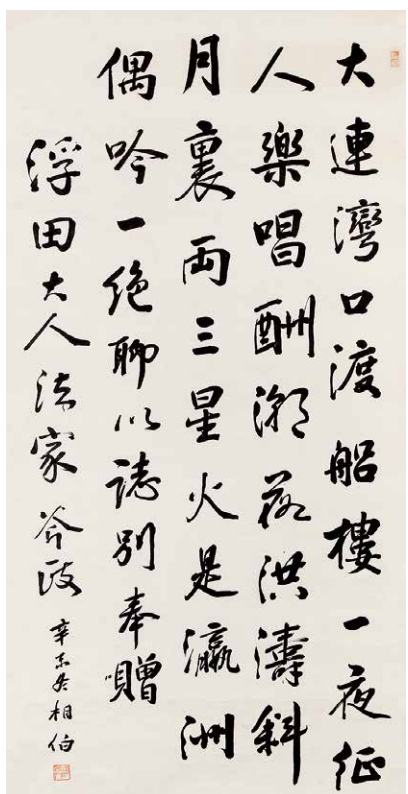 大連灣口渡船樓一夜征
人樂唱酬潮落洪濤斜
月裏両三星火是瀛洲
偶吟一絶聊以誌別奉贈
浮田大人法家斧政
辛未冬相伯